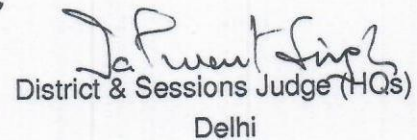 Singh
District & Sessions Judge (HQs)
Delhi